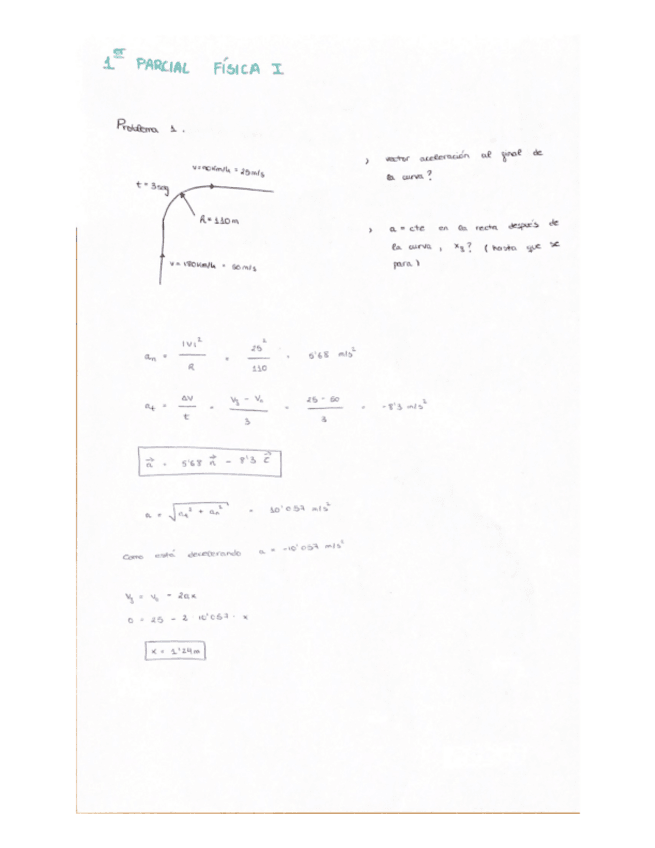 1er PARCIAL FÍSICA I
Problema 1.
v=90km/h = 25m/s
t = 3seg
R = 110m
v = 180km/h = 50m/s
vector aceleración al final de
la curva?
a = cte en la recta después de
la curva, xf? (hasta que se
para)
an = |v|² / R = 25² / 110 = 5'68 m/s²
at = ΔV / t = Vf - Vo / 3 = 25 - 50 / 3 = -8'3 m/s²
5'68 n⃗ - 8'3 τ⃗
a = √at² + an² = 10'057 m/s²
Como está decelerando a = -10'057 m/s²
Vf = Vo - 2ax
0 = 25 - 2 · 10'057 · x
x = 1'24m